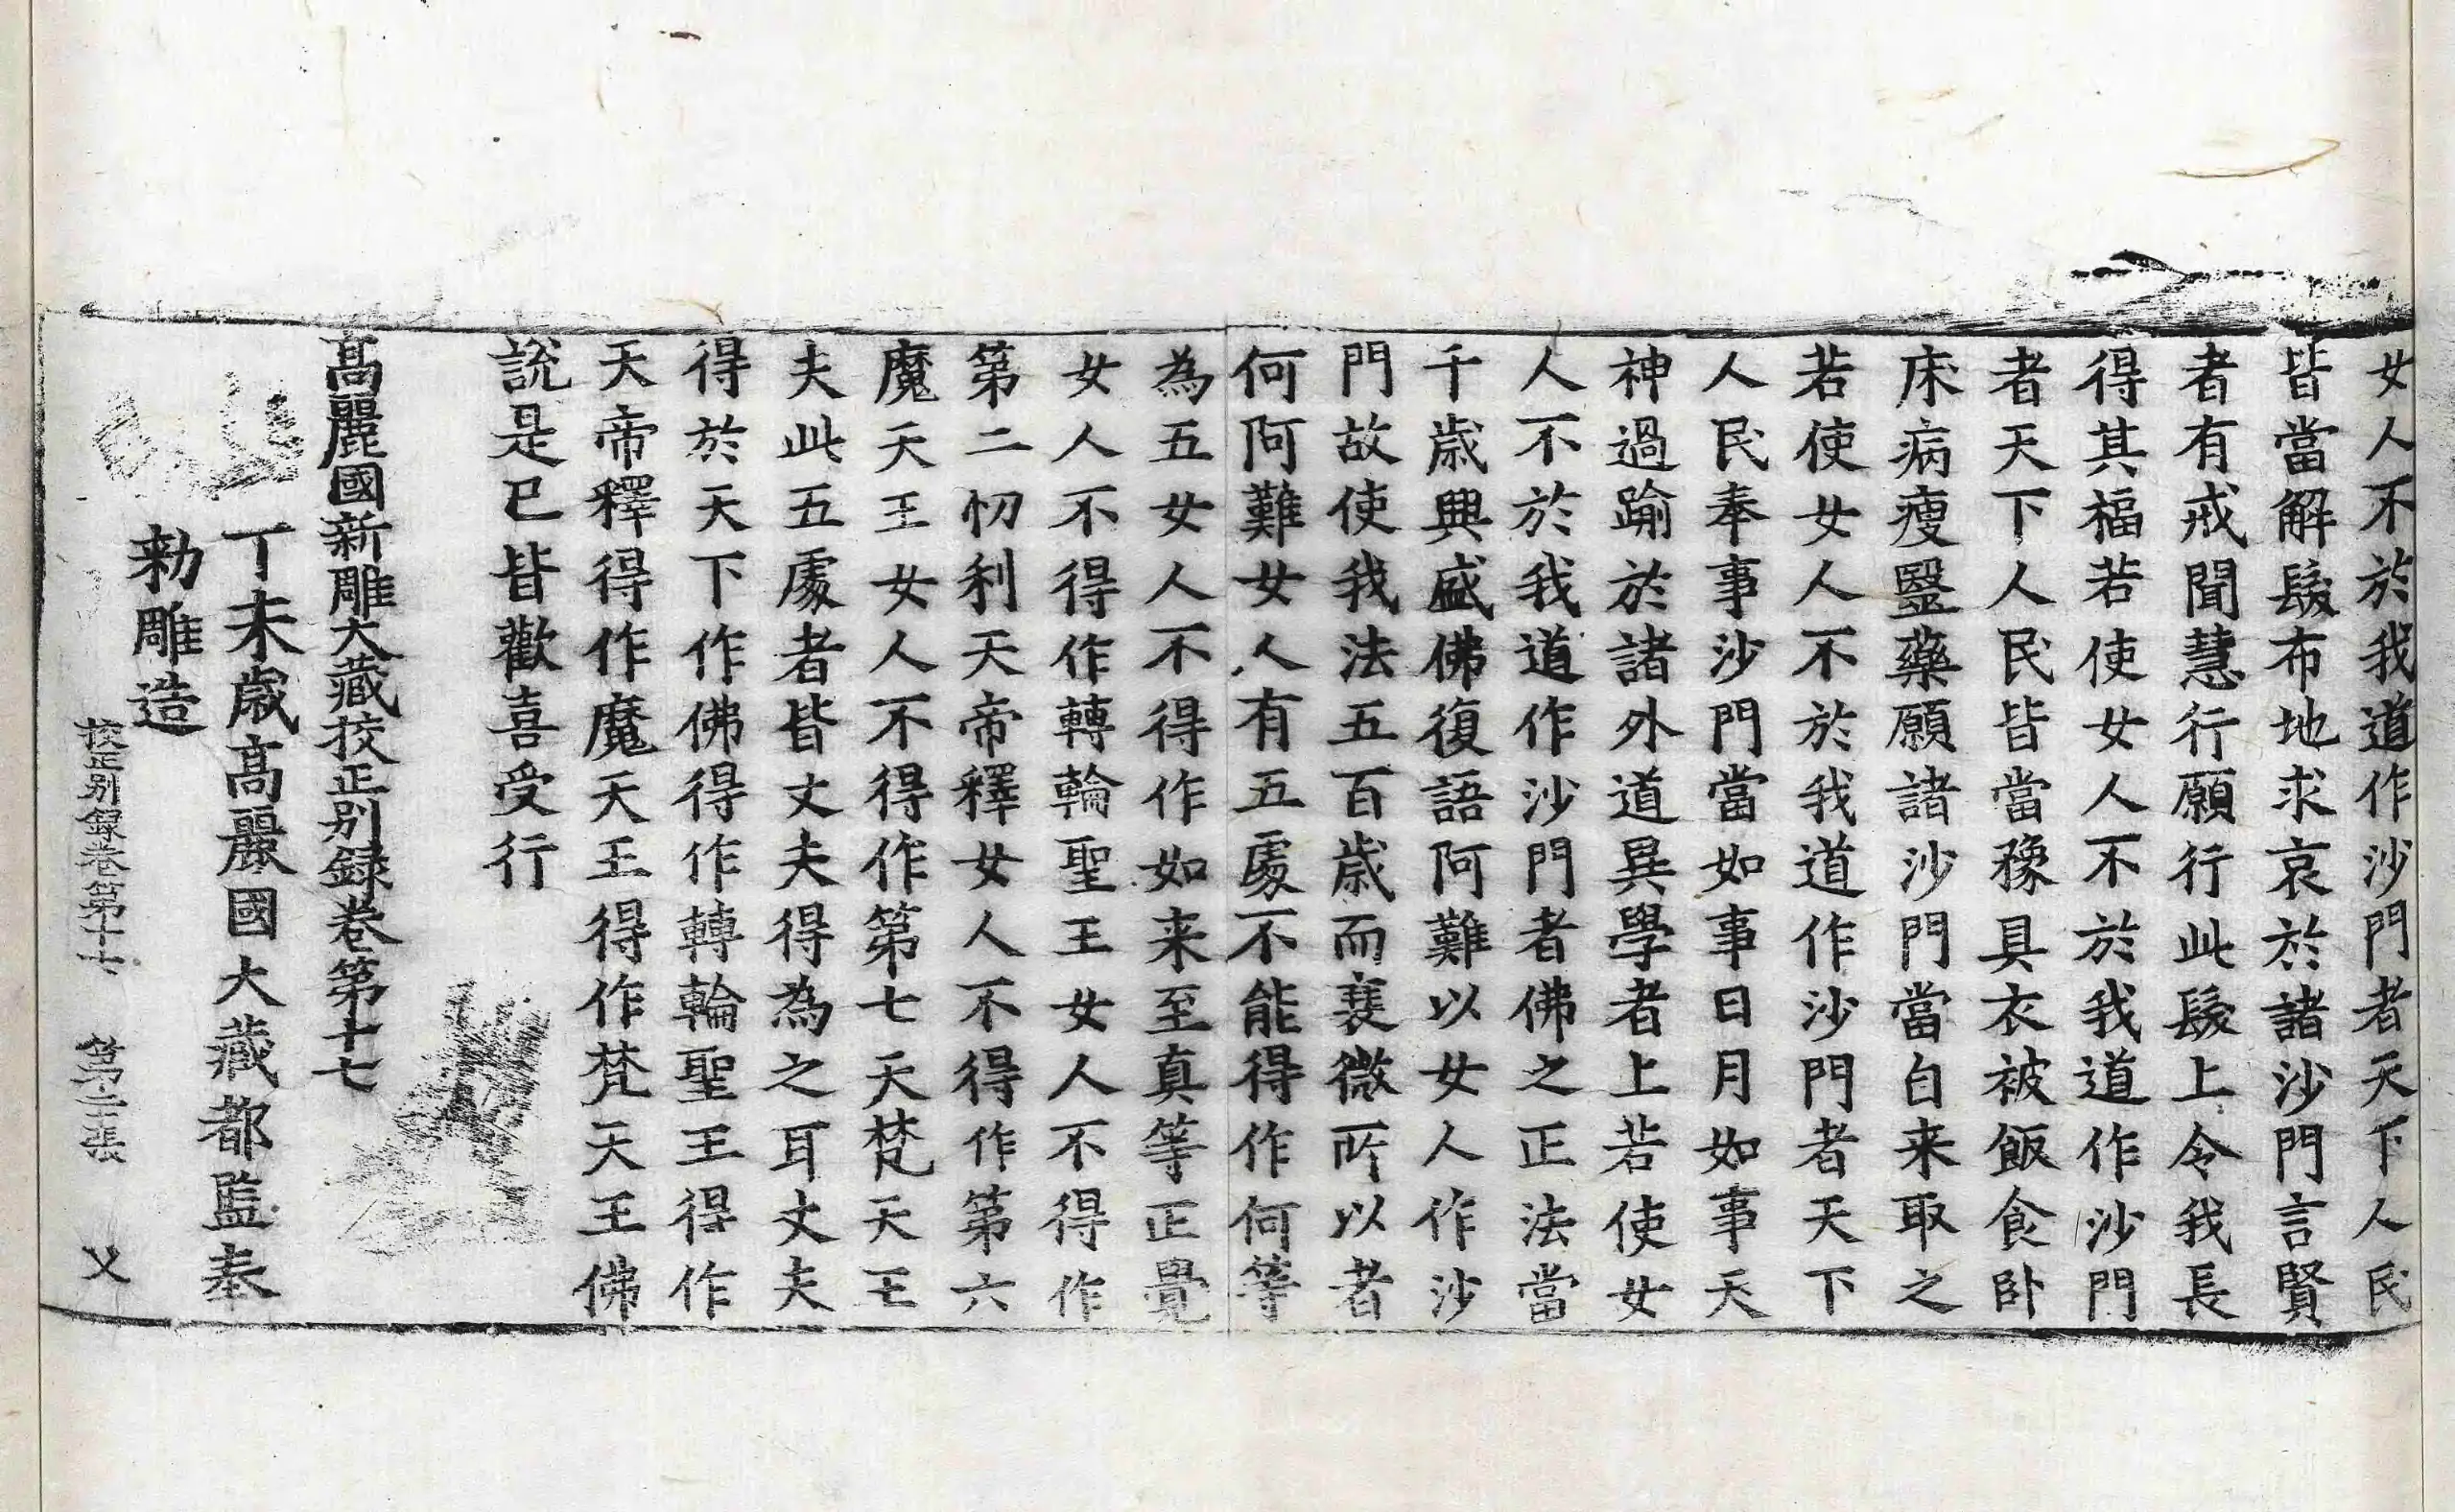 女人不於我道作沙門者天下人民
皆當解髮布地求哀於諸沙門言賢
者有戒聞慧行願行此髮上令我長
得其福若使女人不於我道作沙門
者天下人民皆當豫具衣被飯食卧
床病瘦毉藥願諸沙門當自来取之
若使女人不於我道作沙門者天下
人民奉事沙門當如事日月如事天
神過踰於諸外道異學者上若使女
人不於我道作沙門者佛之正法當
千歲興盛佛復語阿難以女人作沙
門故使我法五百歲而衰微所以者
何阿難女人有五處不能得作何等
為五女人不得作如来至真等正覺
女人不得作轉輪聖王女人不得作
第二忉利天帝釋女人不得作第六
魔天王女人不得作第七天梵天王
夫此五處者皆丈夫得為之耳丈夫
得於天下作佛得作轉輪聖王得作
天帝釋得作魔天王得作梵天王佛
說是已皆歡喜受行
高麗國新雕大藏校正别録卷第十七
丁未歲高麗國大藏都監奉
勑雕造
校正别録卷第十七 第二張 乂